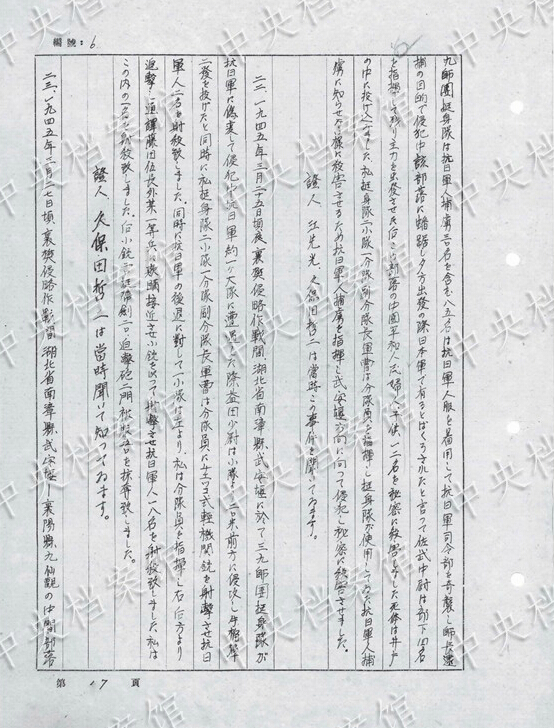 編號：6
九師團挺身隊は抗日軍人捕虜三〇名を含む八五名は抗日軍人服を着用して抗日軍司令部を奇襲し師長逮
捕の目的で侵犯中該部落に蟠踞し夕方出發の際日本軍で有るとばくろされたと言って佐武中尉は部下四名
を指揮して残り主力を出發させた后この部落の中國平和人民婦人子供一二名を秘密に殺害しました死体は井戸
の中に投げ込みました。私挺身隊二小隊一分隊副分隊長軍曹は分隊員を指揮し挺身隊が使用してゐた抗日軍人捕
虜に知らせない様に殺害させるため抗日軍人捕虜を指揮し武安堰方向に向って侵犯し秘密に殺害させました。
證人 江先光、久保田哲二は當時この事件を聞いてゐます。
二二、一九四五年三月二十五日頃襄樊侵略作戰間、湖北省南漳縣武安堰に於て三九師團挺身隊が
抗日軍に偽裝して侵犯中抗日軍約一ヶ大隊に遭遇した際益田少尉は小隊を二〇米前方に侵攻し手榴彈
二發を投げたと同時に私挺身隊二小隊一分隊副分隊長軍曹は分隊員にチェッコ式輕機關銃を射擊させ抗日
軍人二名を射殺致しました。同時に抗日軍の後退に対して一小隊は左より、私は分隊員を指揮し右后方より
追擊し通譯藤田伍長外某一等兵に
接近させ小銃を以って射擊させ抗日軍人一八名を射殺致しました私は
この内の一名を射殺致しました。后小銃
迫擊砲二門
を掠奪致しました。
證人 久保田哲二は當時聞いて知ってゐます。
二三、一九四五年三月二七日頃襄樊侵略作戰間湖北省南漳縣武安堰ー襄陽縣九仙觀の中間部落
第 17 頁
中央档案馆